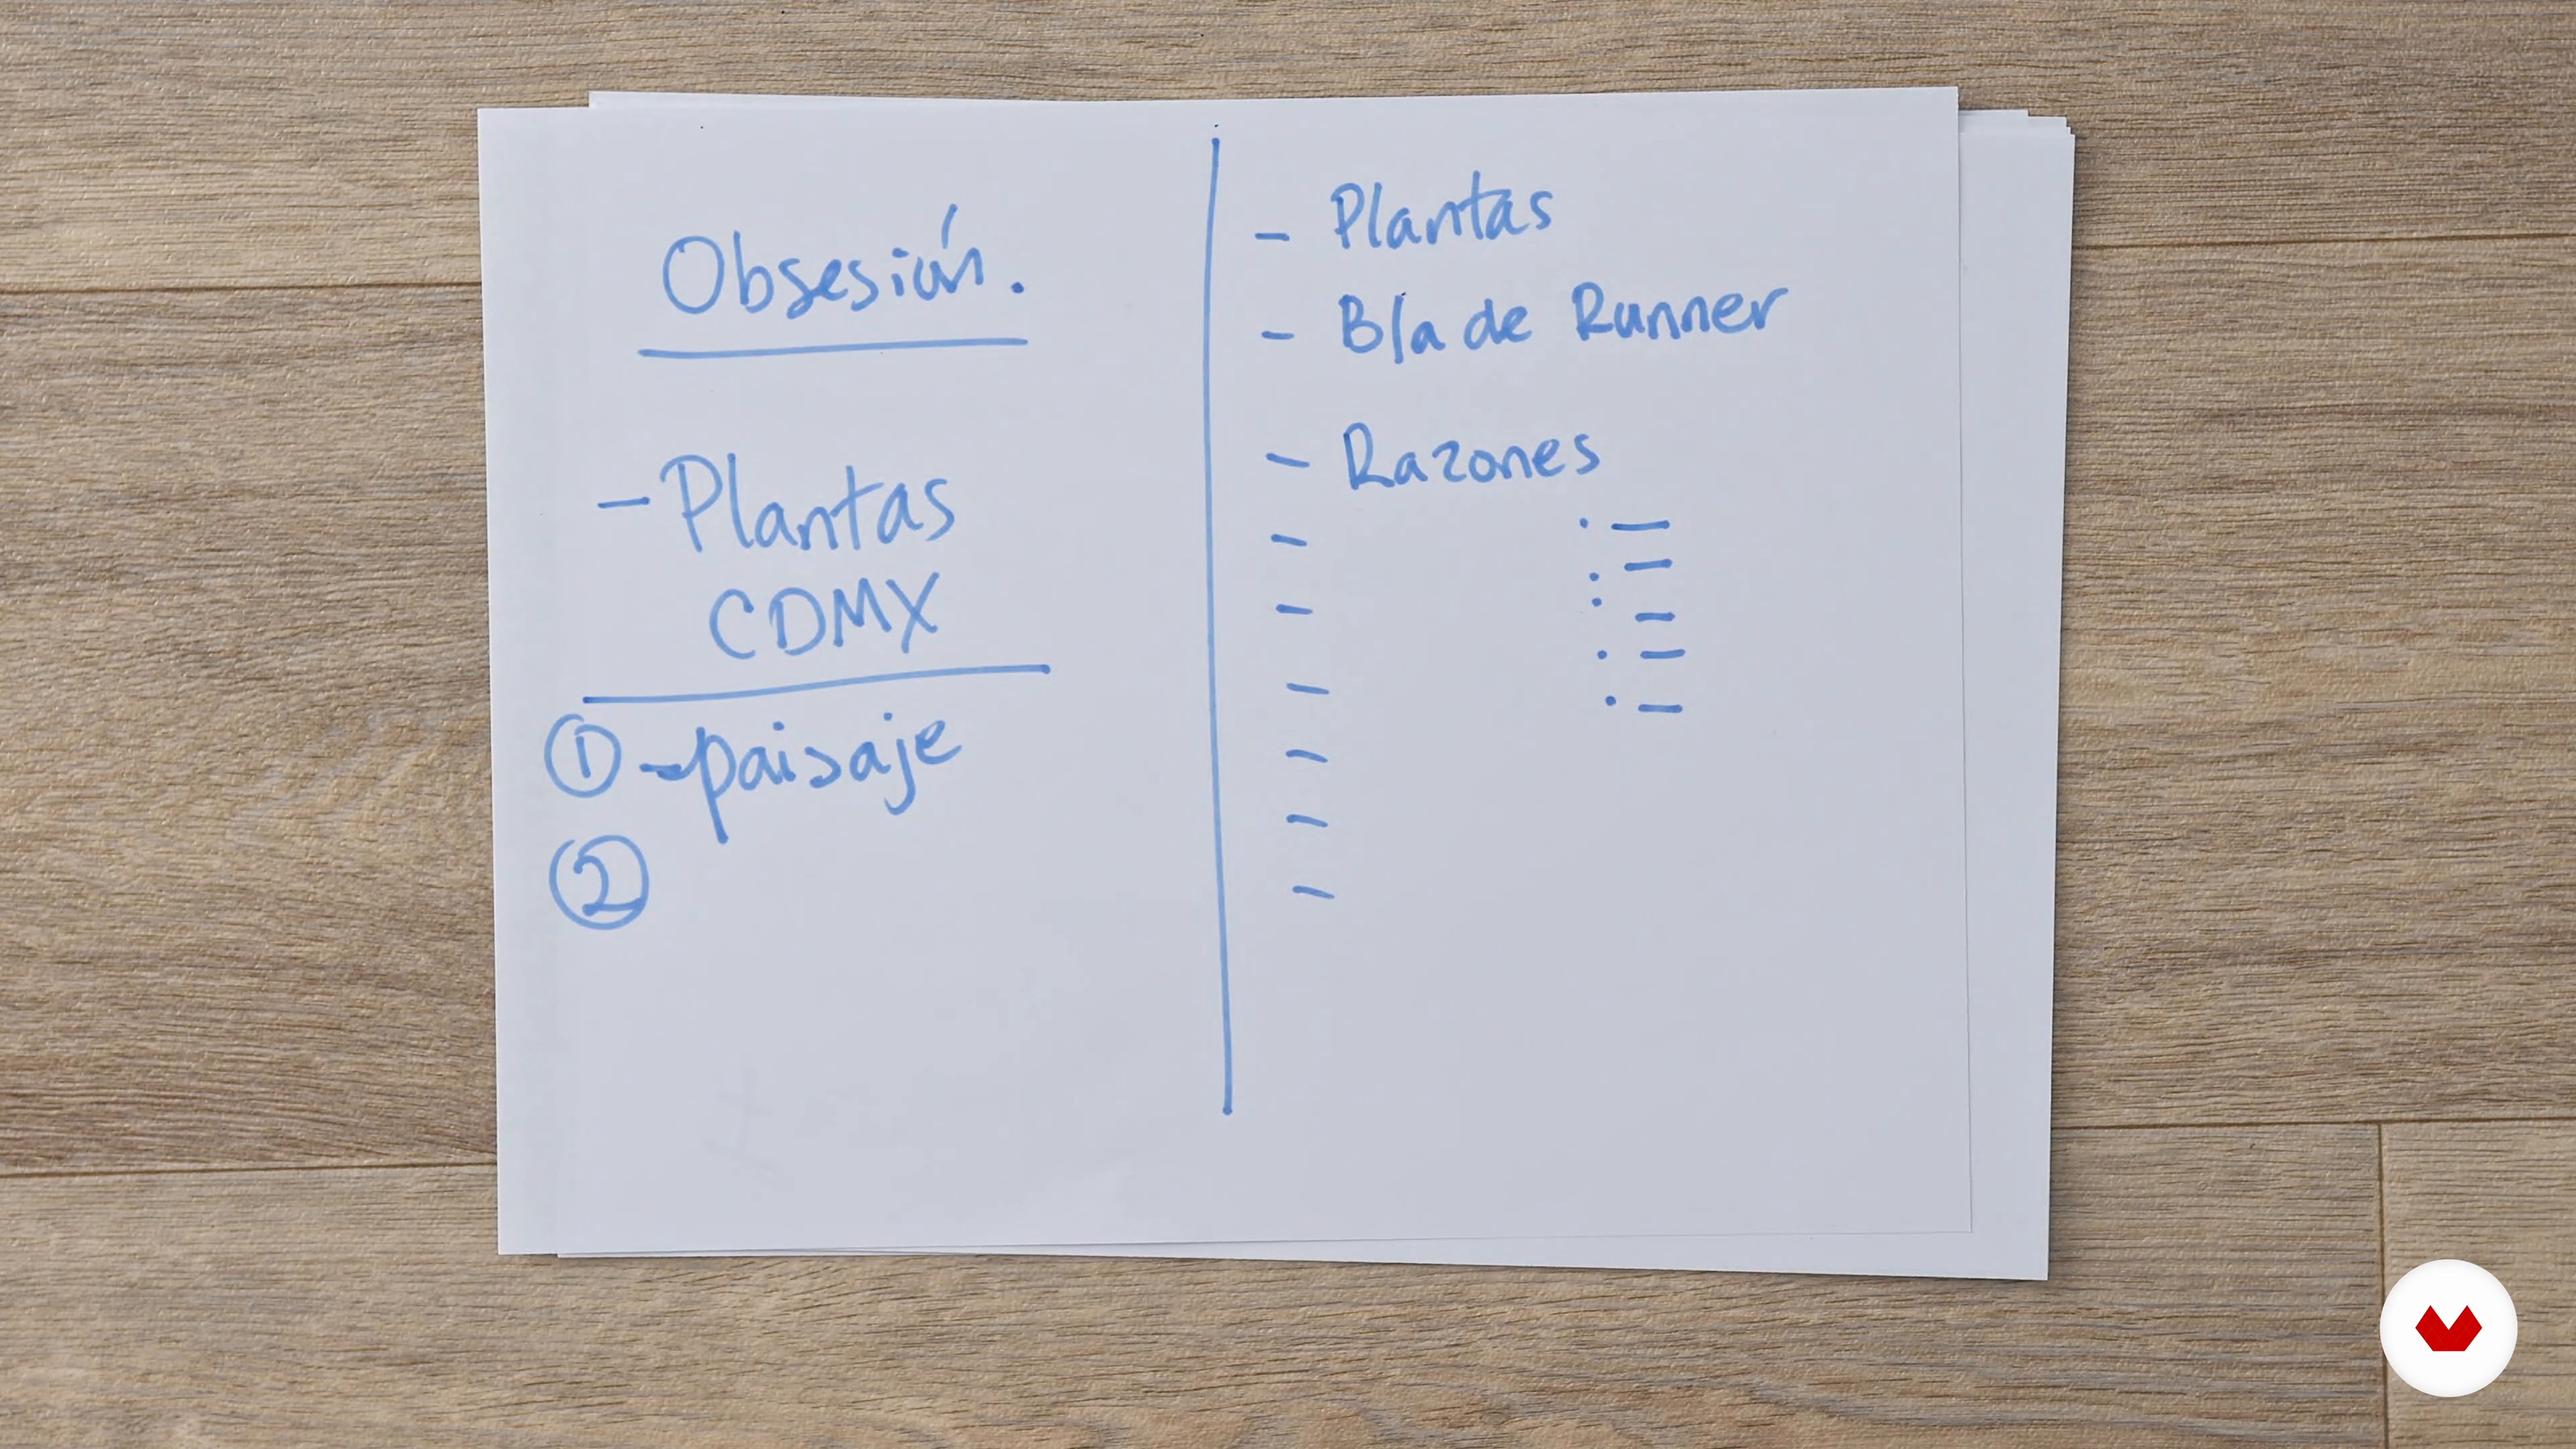 Obsesión.
- Plantas
CDMX
① - paisaje
②
- Plantas
- Blade Runner
- Razones
· -
· -
· -
· -
· -
-
-
-
-
-
-